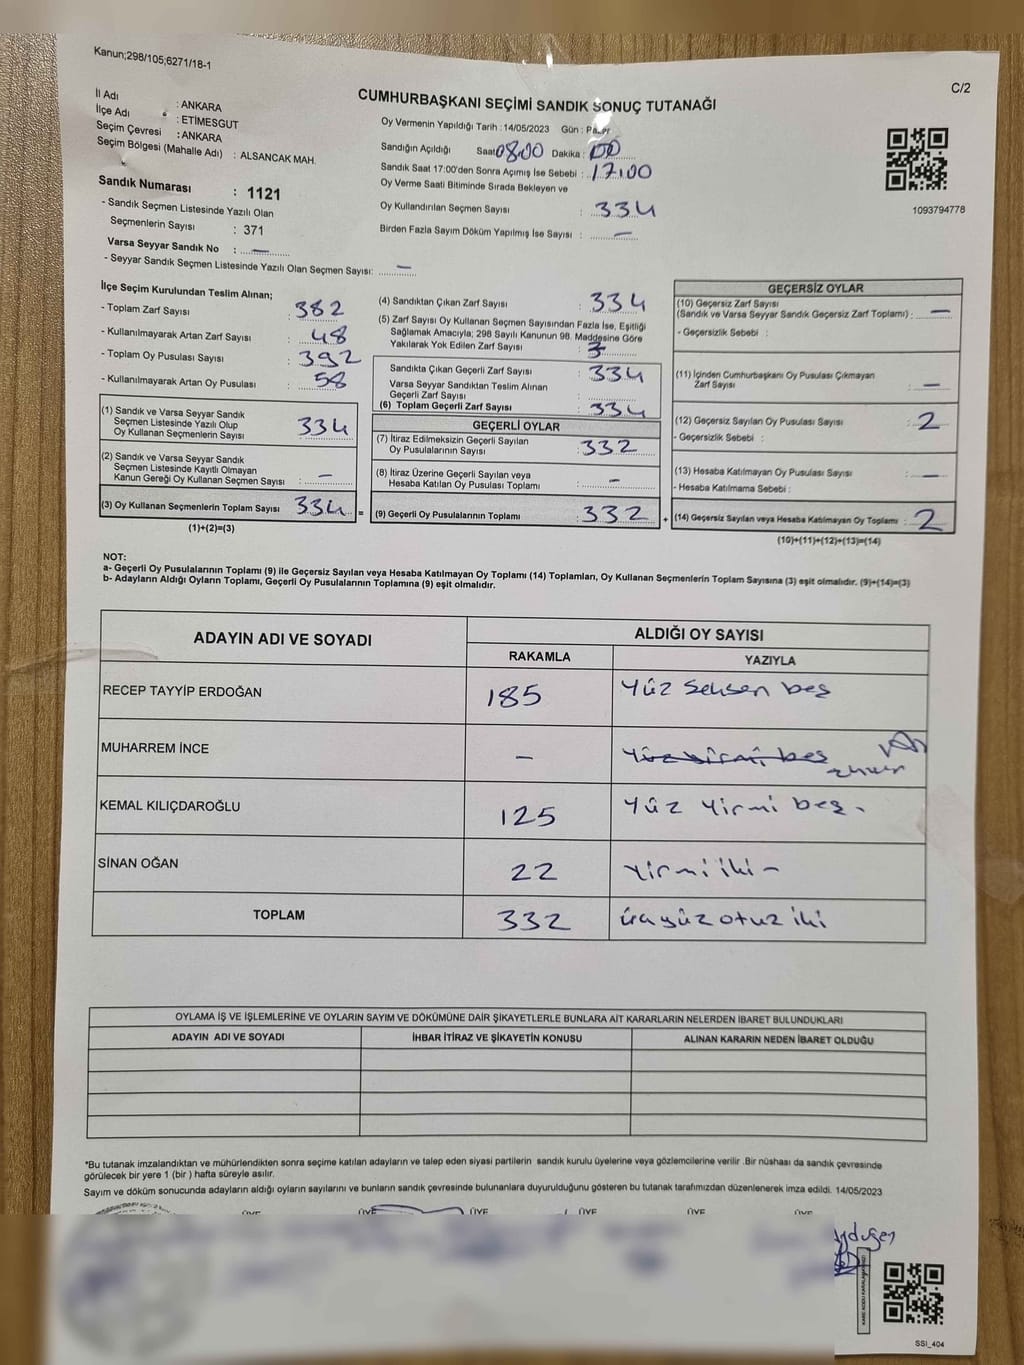 Kanun;298/105;6271/18-1
C/2
CUMHURBAŞKANI SEÇİMİ SANDIK SONUÇ TUTANAĞI
İl Adı : ANKARA
İlçe Adı : ETİMESGUT
Seçim Çevresi : ANKARA
Seçim Bölgesi (Mahalle Adı) : ALSANCAK MAH.
Sandık Numarası : 1121
- Sandık Seçmen Listesinde Yazılı Olan
Seçmenlerin Sayısı : 371
Varsa Seyyar Sandık No : —
- Seyyar Sandık Seçmen Listesinde Yazılı Olan Seçmen Sayısı: —
Oy Vermenin Yapıldığı Tarih : 14/05/2023 Gün : Pazar
Sandığın Açıldığı Saat 08.00 Dakika : 00
Sandık Saat 17:00'den Sonra Açımış İse Sebebi : 17.00
Oy Verme Saati Bitiminde Sırada Bekleyen ve
Oy Kullandırılan Seçmen Sayısı : 334
Birden Fazla Sayım Döküm Yapılmış İse Sayısı : —
1093794778
İlçe Seçim Kurulundan Teslim Alınan;
- Toplam Zarf Sayısı : 382
- Kullanılmayarak Artan Zarf Sayısı : 48
- Toplam Oy Pusulası Sayısı : 392
- Kullanılmayarak Artan Oy Pusulası : 58
(1) Sandık ve Varsa Seyyar Sandık
Seçmen Listesinde Yazılı Olup
Oy Kullanan Seçmenlerin Sayısı : 334
(2) Sandık ve Varsa Seyyar Sandık
Seçmen Listesinde Kayıtlı Olmayan
Kanun Gereği Oy Kullanan Seçmen Sayısı : —
(3) Oy Kullanan Seçmenlerin Toplam Sayısı 334 =
(1)+(2)=(3)
(4) Sandıktan Çıkan Zarf Sayısı : 334
(5) Zarf Sayısı Oy Kullanan Seçmen Sayısından Fazla İse, Eşitliği
Sağlamak Amacıyla; 298 Sayılı Kanunun 98. Maddesine Göre
Yakılarak Yok Edilen Zarf Sayısı :
Sandıkta Çıkan Geçerli Zarf Sayısı : 334
Varsa Seyyar Sandıktan Teslim Alınan
Geçerli Zarf Sayısı :
(6) Toplam Geçerli Zarf Sayısı : 334
GEÇERLİ OYLAR
(7) İtiraz Edilmeksizin Geçerli Sayılan
Oy Pusulalarının Sayısı : 332
(8) İtiraz Üzerine Geçerli Sayılan veya
Hesaba Katılan Oy Pusulası Toplamı : —
(9) Geçerli Oy Pusulalarının Toplamı : 332 +
GEÇERSİZ OYLAR
(10) Geçersiz Zarf Sayısı
(Sandık ve Varsa Seyyar Sandık Geçersiz Zarf Toplamı) : —
- Geçersizlik Sebebi :
(11) İçinden Cumhurbaşkanı Oy Pusulası Çıkmayan
Zarf Sayısı : —
(12) Geçersiz Sayılan Oy Pusulası Sayısı : 2
- Geçersizlik Sebebi :
(13) Hesaba Katılmayan Oy Pusulası Sayısı : —
- Hesaba Katılmama Sebebi :
(14) Geçersiz Sayılan veya Hesaba Katılmayan Oy Toplamı : 2
(10)+(11)+(12)+(13)=(14)
NOT:
a- Geçerli Oy Pusulalarının Toplamı (9) ile Geçersiz Sayılan veya Hesaba Katılmayan Oy Toplamı (14) Toplamları, Oy Kullanan Seçmenlerin Toplam Sayısına (3) eşit olmalıdır. (9)+(14)=(3)
b- Adayların Aldığı Oyların Toplamı, Geçerli Oy Pusulalarının Toplamına (9) eşit olmalıdır.
ADAYIN ADI VE SOYADI ALDIĞI OY SAYISI
RAKAMLA YAZIYLA
RECEP TAYYİP ERDOĞAN 185 Yüz Seksen beş
MUHARREM İNCE — yüz yirmi beş
KEMAL KILIÇDAROĞLU 125 Yüz Yirmi beş.
SİNAN OĞAN 22 Yirmi iki -
TOPLAM 332 üçyüz otuz iki
OYLAMA İŞ VE İŞLEMLERİNE VE OYLARIN SAYIM VE DÖKÜMÜNE DAİR ŞİKAYETLERLE BUNLARA AİT KARARLARIN NELERDEN İBARET BULUNDUKLARI
ADAYIN ADI VE SOYADI İHBAR İTİRAZ VE ŞİKAYETİN KONUSU ALINAN KARARIN NEDEN İBARET OLDUĞU
*Bu tutanak imzalandıktan ve mühürlendikten sonra seçime katılan adayların ve talep eden siyasi partilerin sandık kurulu üyelerine veya gözlemcilerine verilir .Bir nüshası da sandık çevresinde
görülecek bir yere 1 (bir ) hafta süreyle asılır.
Sayım ve döküm sonucunda adayların aldığı oyların sayılarını ve bunların sandık çevresinde bulunanlara duyurulduğunu gösteren bu tutanak tarafımızdan düzenlenerek imza edildi. 14/05/2023
ÜYE ÜYE ÜYE ÜYE ÜYE ÜYE
SSI_404